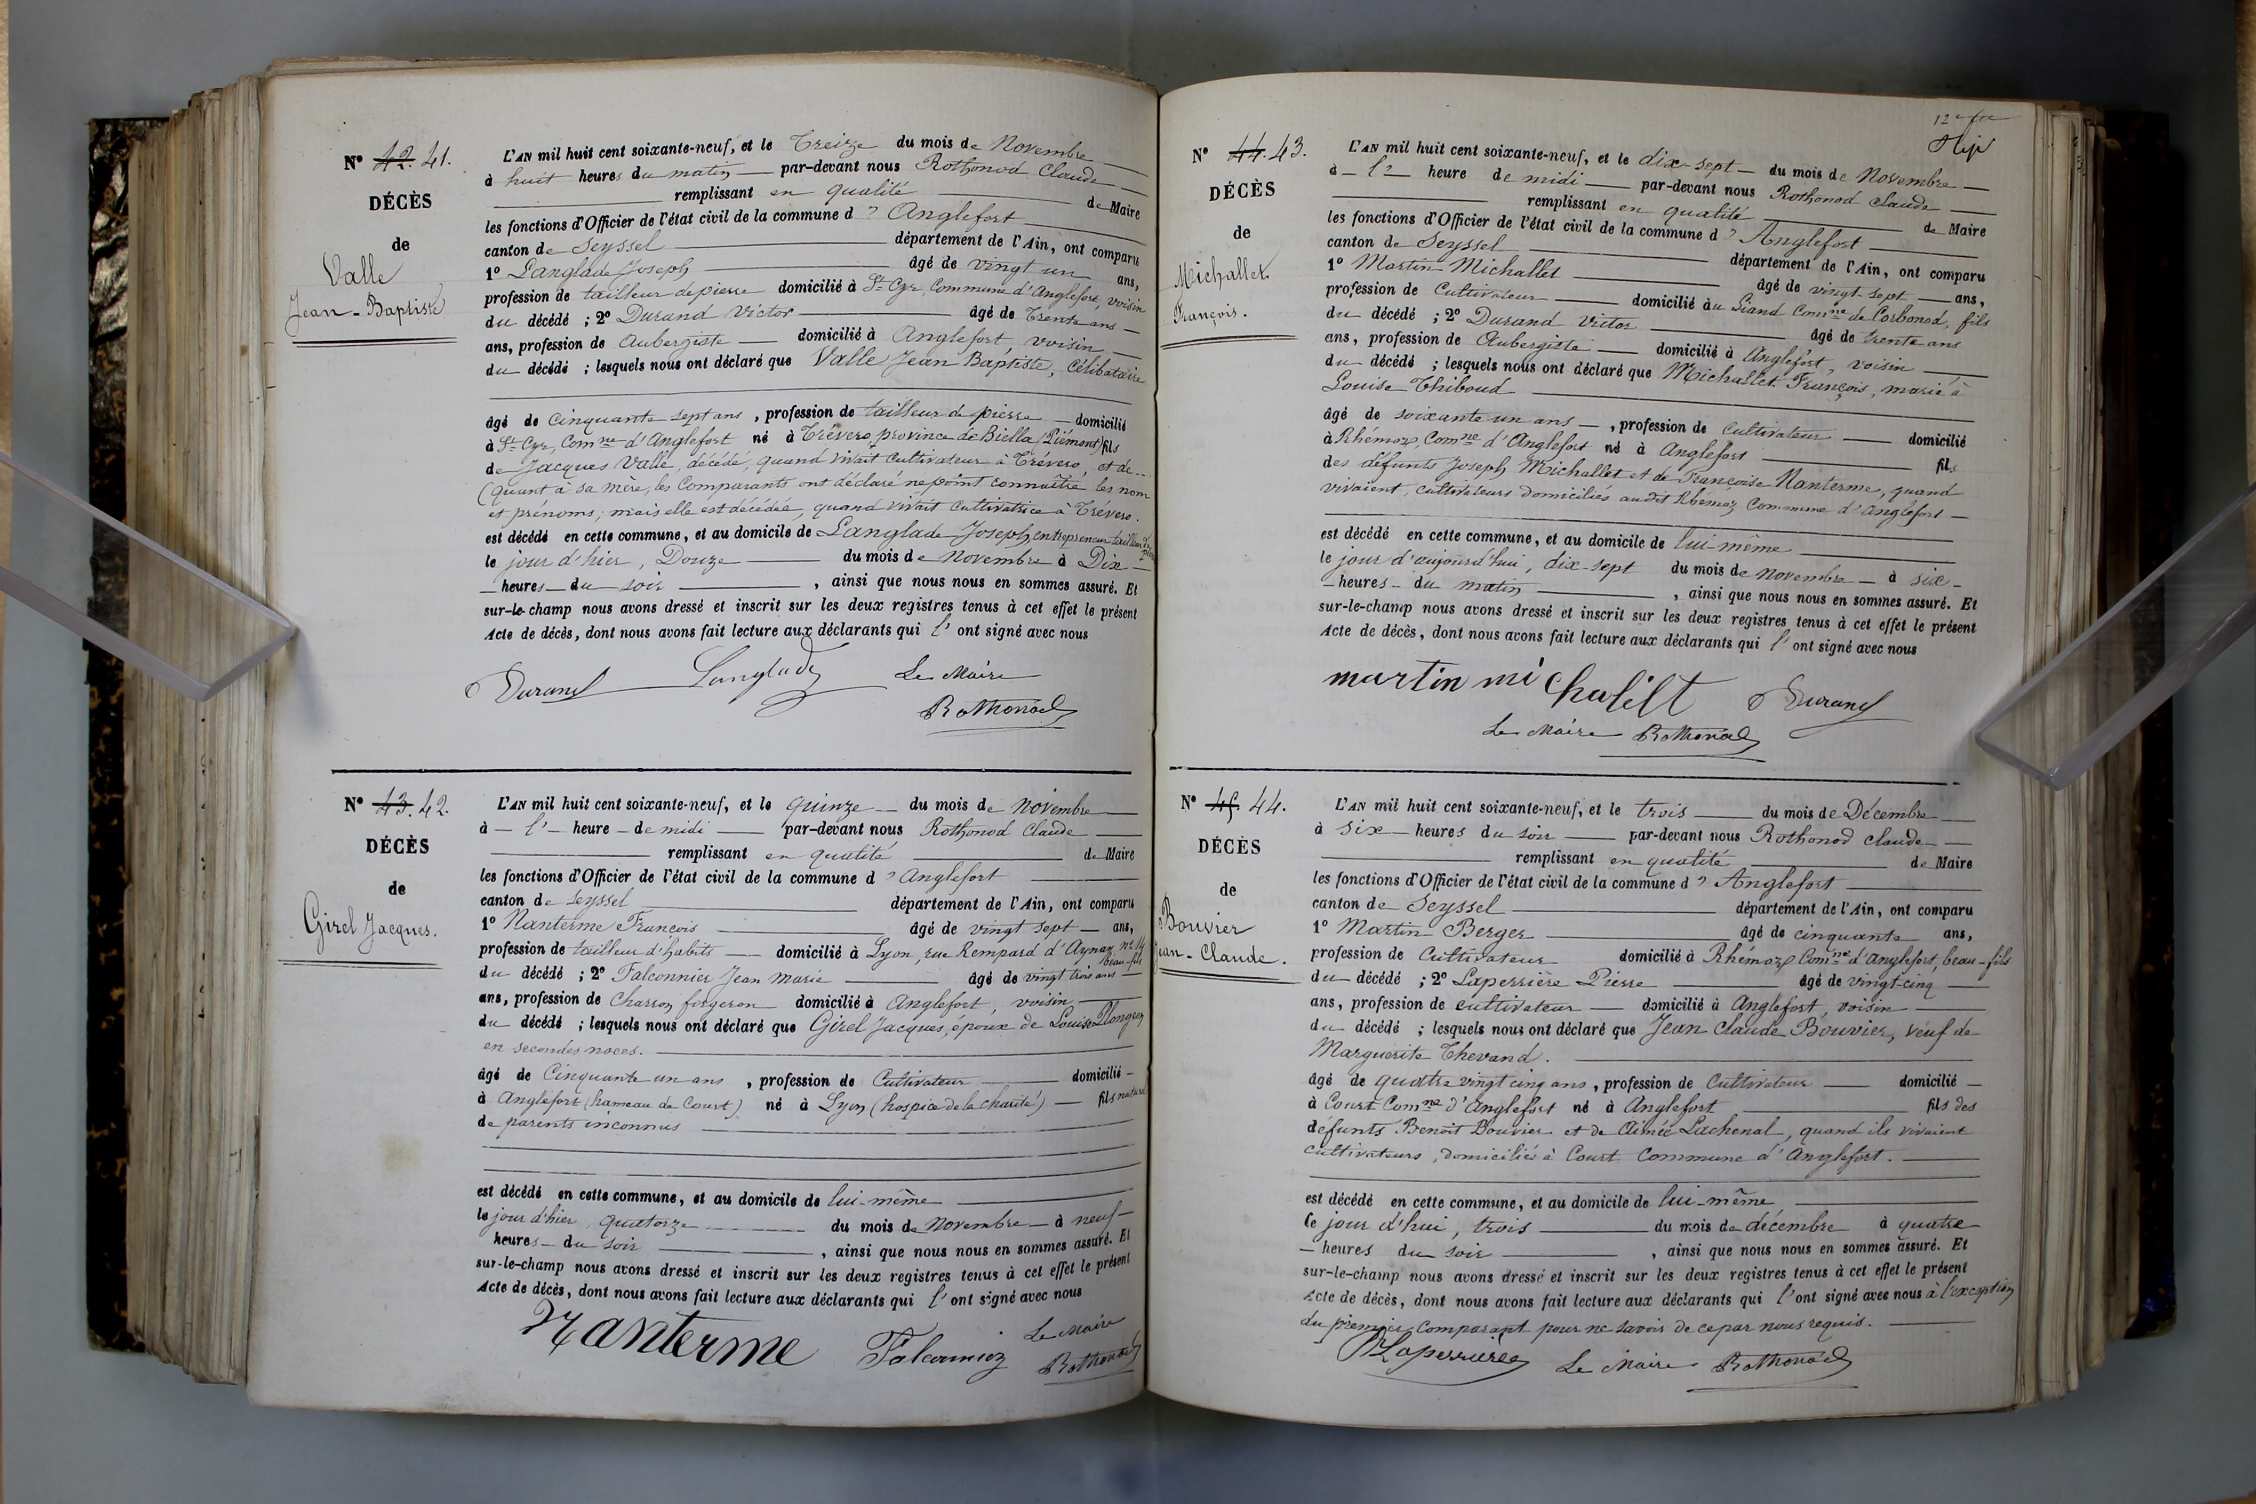 N° 42. 41.
DÉCÈS
de
Valle
Jean-Baptiste
L'AN mil huit cent soixante-neuf, et le Treize du mois de Novembre
à huit heures du matin par-devant nous Rothonod Claude
remplissant en qualité de Maire
les fonctions d'Officier de l'état civil de la commune d' Anglefort
canton de Seyssel département de l'Ain, ont comparu
1° Langlade Joseph âgé de vingt un ans,
profession de tailleur de pierre domicilié à St Cyr, Commune d'Anglefort, voisin
du décédé ; 2° Durand Victor âgé de Trente ans
ans, profession de Aubergiste domicilié à Anglefort, voisin
du décédé ; lesquels nous ont déclaré que Valle Jean Baptiste, Célibataire
âgé de Cinquante sept ans, profession de tailleur de pierre domicilié
à St Cyr, Comne d'Anglefort né à Trévero province de Biella (Piémont) fils
de Jacques Valle, décédé, quand vivait Cultivateur à Trévero, et de
(quant à sa mère, les Comparants ont déclaré ne point connaître les nom
et prénoms, mais elle est décédée, quand vivait Cultivatrice à Trévero.
est décédé en cette commune, et au domicile de Langlade Joseph, entrepreneur tailleur de pierre
le jour d'hier, Douze du mois de Novembre à Dix
heures du soir, ainsi que nous nous en sommes assuré. Et
sur-le-champ nous avons dressé et inscrit sur les deux registres tenus à cet effet le présent
Acte de décès, dont nous avons fait lecture aux déclarants qui l' ont signé avec nous
Durand Langlade Le Maire
Rothonod
N° 43. 42.
DÉCÈS
de
Girel Jacques.
L'AN mil huit cent soixante-neuf, et le quinze du mois de Novembre
à l' heure de midi par-devant nous Rothonod Claude
remplissant en qualité de Maire
les fonctions d'Officier de l'état civil de la commune d' Anglefort
canton de Seyssel département de l'Ain, ont comparu
1° Nanterme François âgé de vingt sept ans,
profession de tailleur d'habits domicilié à Lyon, rue Rempard d'Aynay, n° 14 beau-fils
du décédé ; 2° Falconnier Jean Marie âgé de vingt trois ans
ans, profession de Charron forgeron domicilié à Anglefort, voisin
du décédé ; lesquels nous ont déclaré que Girel Jacques, époux de Louise
en secondes noces.
âgé de Cinquante un ans, profession de Cultivateur domicilié
à Anglefort (hameau de Court) né à Lyon (hospice de la charité) fils naturel
de parents inconnus
est décédé en cette commune, et au domicile de lui-même
le jour d'hier, quatorze du mois de Novembre à neuf
heures du soir, ainsi que nous nous en sommes assuré. Et
sur-le-champ nous avons dressé et inscrit sur les deux registres tenus à cet effet le présent
Acte de décès, dont nous avons fait lecture aux déclarants qui l' ont signé avec nous
Nanterme Falconnier Le Maire
Rothonod
N° 44. 43.
DÉCÈS
de
Michallet
François.
L'AN mil huit cent soixante-neuf, et le dix-sept du mois de Novembre
à l' heure de midi par-devant nous Rothonod Claude
remplissant en qualité de Maire
les fonctions d'Officier de l'état civil de la commune d' Anglefort
canton de Seyssel département de l'Ain, ont comparu
1° Martin Michallet âgé de vingt-sept ans,
profession de Cultivateur domicilié au Siand Comne de Corbonod, fils
du décédé ; 2° Durand Victor âgé de trente ans
ans, profession de Aubergiste domicilié à Anglefort, voisin
du décédé ; lesquels nous ont déclaré que Michallet François, marié à
Louise Thiboud
âgé de soixante un ans, profession de cultivateur domicilié
à Rhémoz, Comne d'Anglefort né à Anglefort fils
des défunts Joseph Michallet et de Françoise Nanterme, quand
vivaient, cultivateurs domiciliés audit Rhémoz Commune d'Anglefort
est décédé en cette commune, et au domicile de lui-même
le jour d'aujourd'hui, dix-sept du mois de Novembre à six
heures du matin, ainsi que nous nous en sommes assuré. Et
sur-le-champ nous avons dressé et inscrit sur les deux registres tenus à cet effet le présent
Acte de décès, dont nous avons fait lecture aux déclarants qui l' ont signé avec nous
martin mi chalilt Durand
Le Maire Rothonod
N° 45. 44.
DÉCÈS
de
Bouvier
Jean-Claude.
L'AN mil huit cent soixante-neuf, et le trois du mois de Décembre
à six heures du soir par-devant nous Rothonod Claude
remplissant en qualité de Maire
les fonctions d'Officier de l'état civil de la commune d' Anglefort
canton de Seyssel département de l'Ain, ont comparu
1° Martin Berger âgé de cinquante ans,
profession de Cultivateur domicilié à Rhémoz Comne d'Anglefort, beau-fils
du décédé ; 2° Laperrière Pierre âgé de vingt-cinq
ans, profession de cultivateur domicilié à Anglefort, voisin
du décédé ; lesquels nous ont déclaré que Jean Claude Bouvier, veuf de
Marguerite Thevand.
âgé de quatre vingt cinq ans, profession de Cultivateur domicilié
à Court Comne d'Anglefort né à Anglefort fils des
défunts Benoît Bouvier et de Aimée Lachenal, quand ils vivaient
cultivateurs, domiciliés à Court Commune d'Anglefort.
est décédé en cette commune, et au domicile de lui-même
le jour d'hui, trois du mois de décembre à quatre
heures du soir, ainsi que nous nous en sommes assuré. Et
sur-le-champ nous avons dressé et inscrit sur les deux registres tenus à cet effet le présent
Acte de décès, dont nous avons fait lecture aux déclarants qui l' ont signé avec nous à l'exception
du premier Comparant pour ne savoir de ce par nous requis.
Laperrière Le Maire Rothonod